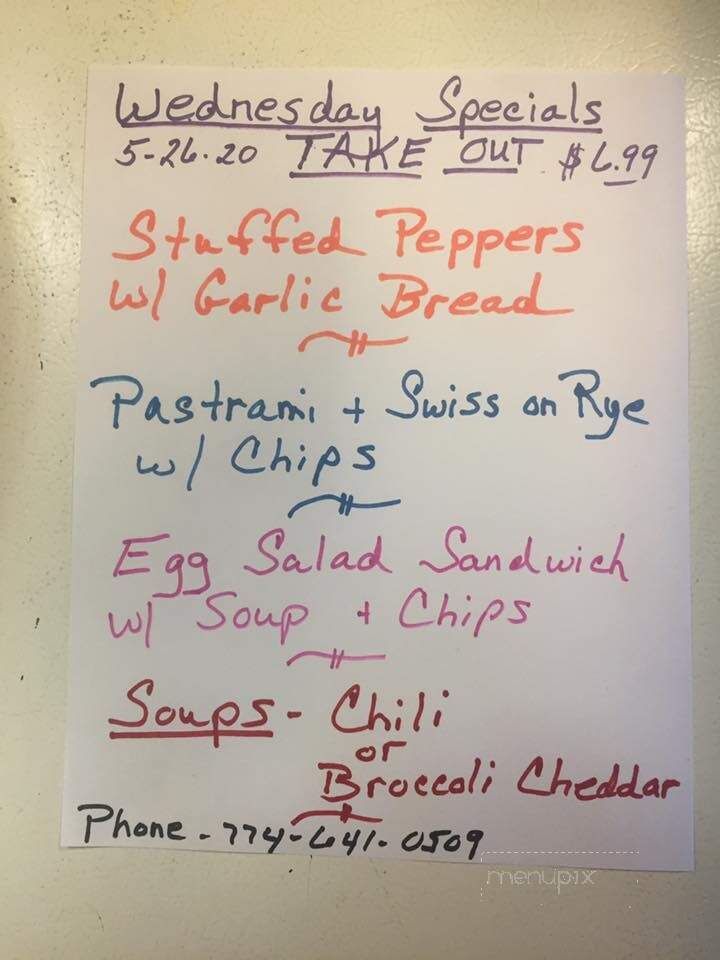 Wednesday Specials
5-26-20 TAKE OUT $6.99
Stuffed Peppers
w/ Garlic Bread
Pastrami + Swiss on Rye
w/ Chips
Egg Salad Sandwich
w/ Soup + Chips
Soups - Chili
or
Broccoli Cheddar
Phone - 774-641-0509
menupix